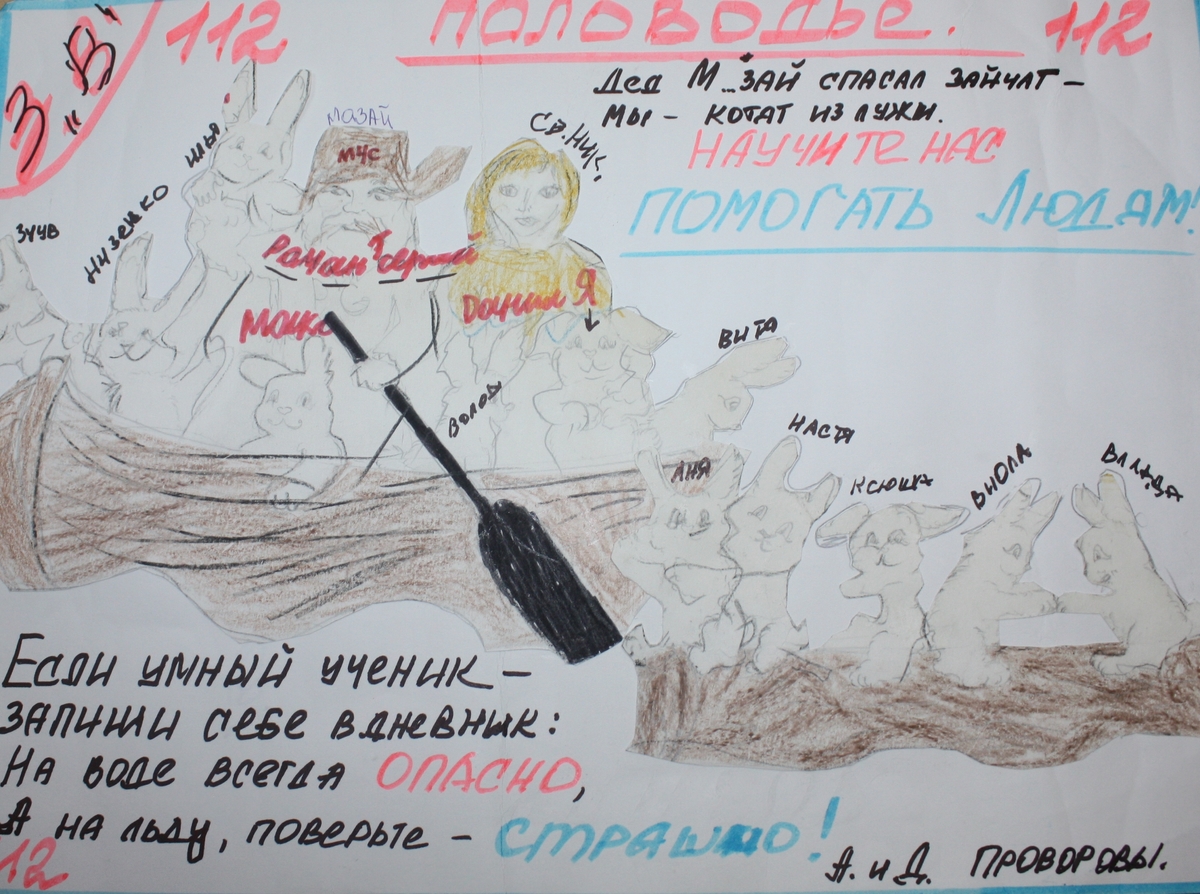 3 "В"
112
ПОЛОВОДЬЕ.
112
ДЕД М..ЗАЙ СПАСАЛ ЗАЙЧАТ –
МЫ – КОТАТ ИЗ ЛУЖИ.
НАУЧИТЕ НАС
ПОМОГАТЬ ЛЮДЯМ!
МАЗАЙ
МЧС
СВ. НИК.
ИЛЬЯ
НИЗЕНКО
ЗУЧВ
Роман
Сергей
Макс
Данил Я
ВОЛОДЯ
ВИТА
АНЯ
НАСТЯ
КСЮША
ВИОЛА
ВЛАДА
ЕСЛИ УМНЫЙ УЧЕНИК –
ЗАПИШИ СЕБЕ В ДНЕВНИК:
НА ВОДЕ ВСЕГДА ОПАСНО,
А НА ЛЬДУ, ПОВЕРЬТЕ – СТРАШНО!
112
А. И Д. ПРОВОРОВЫ.